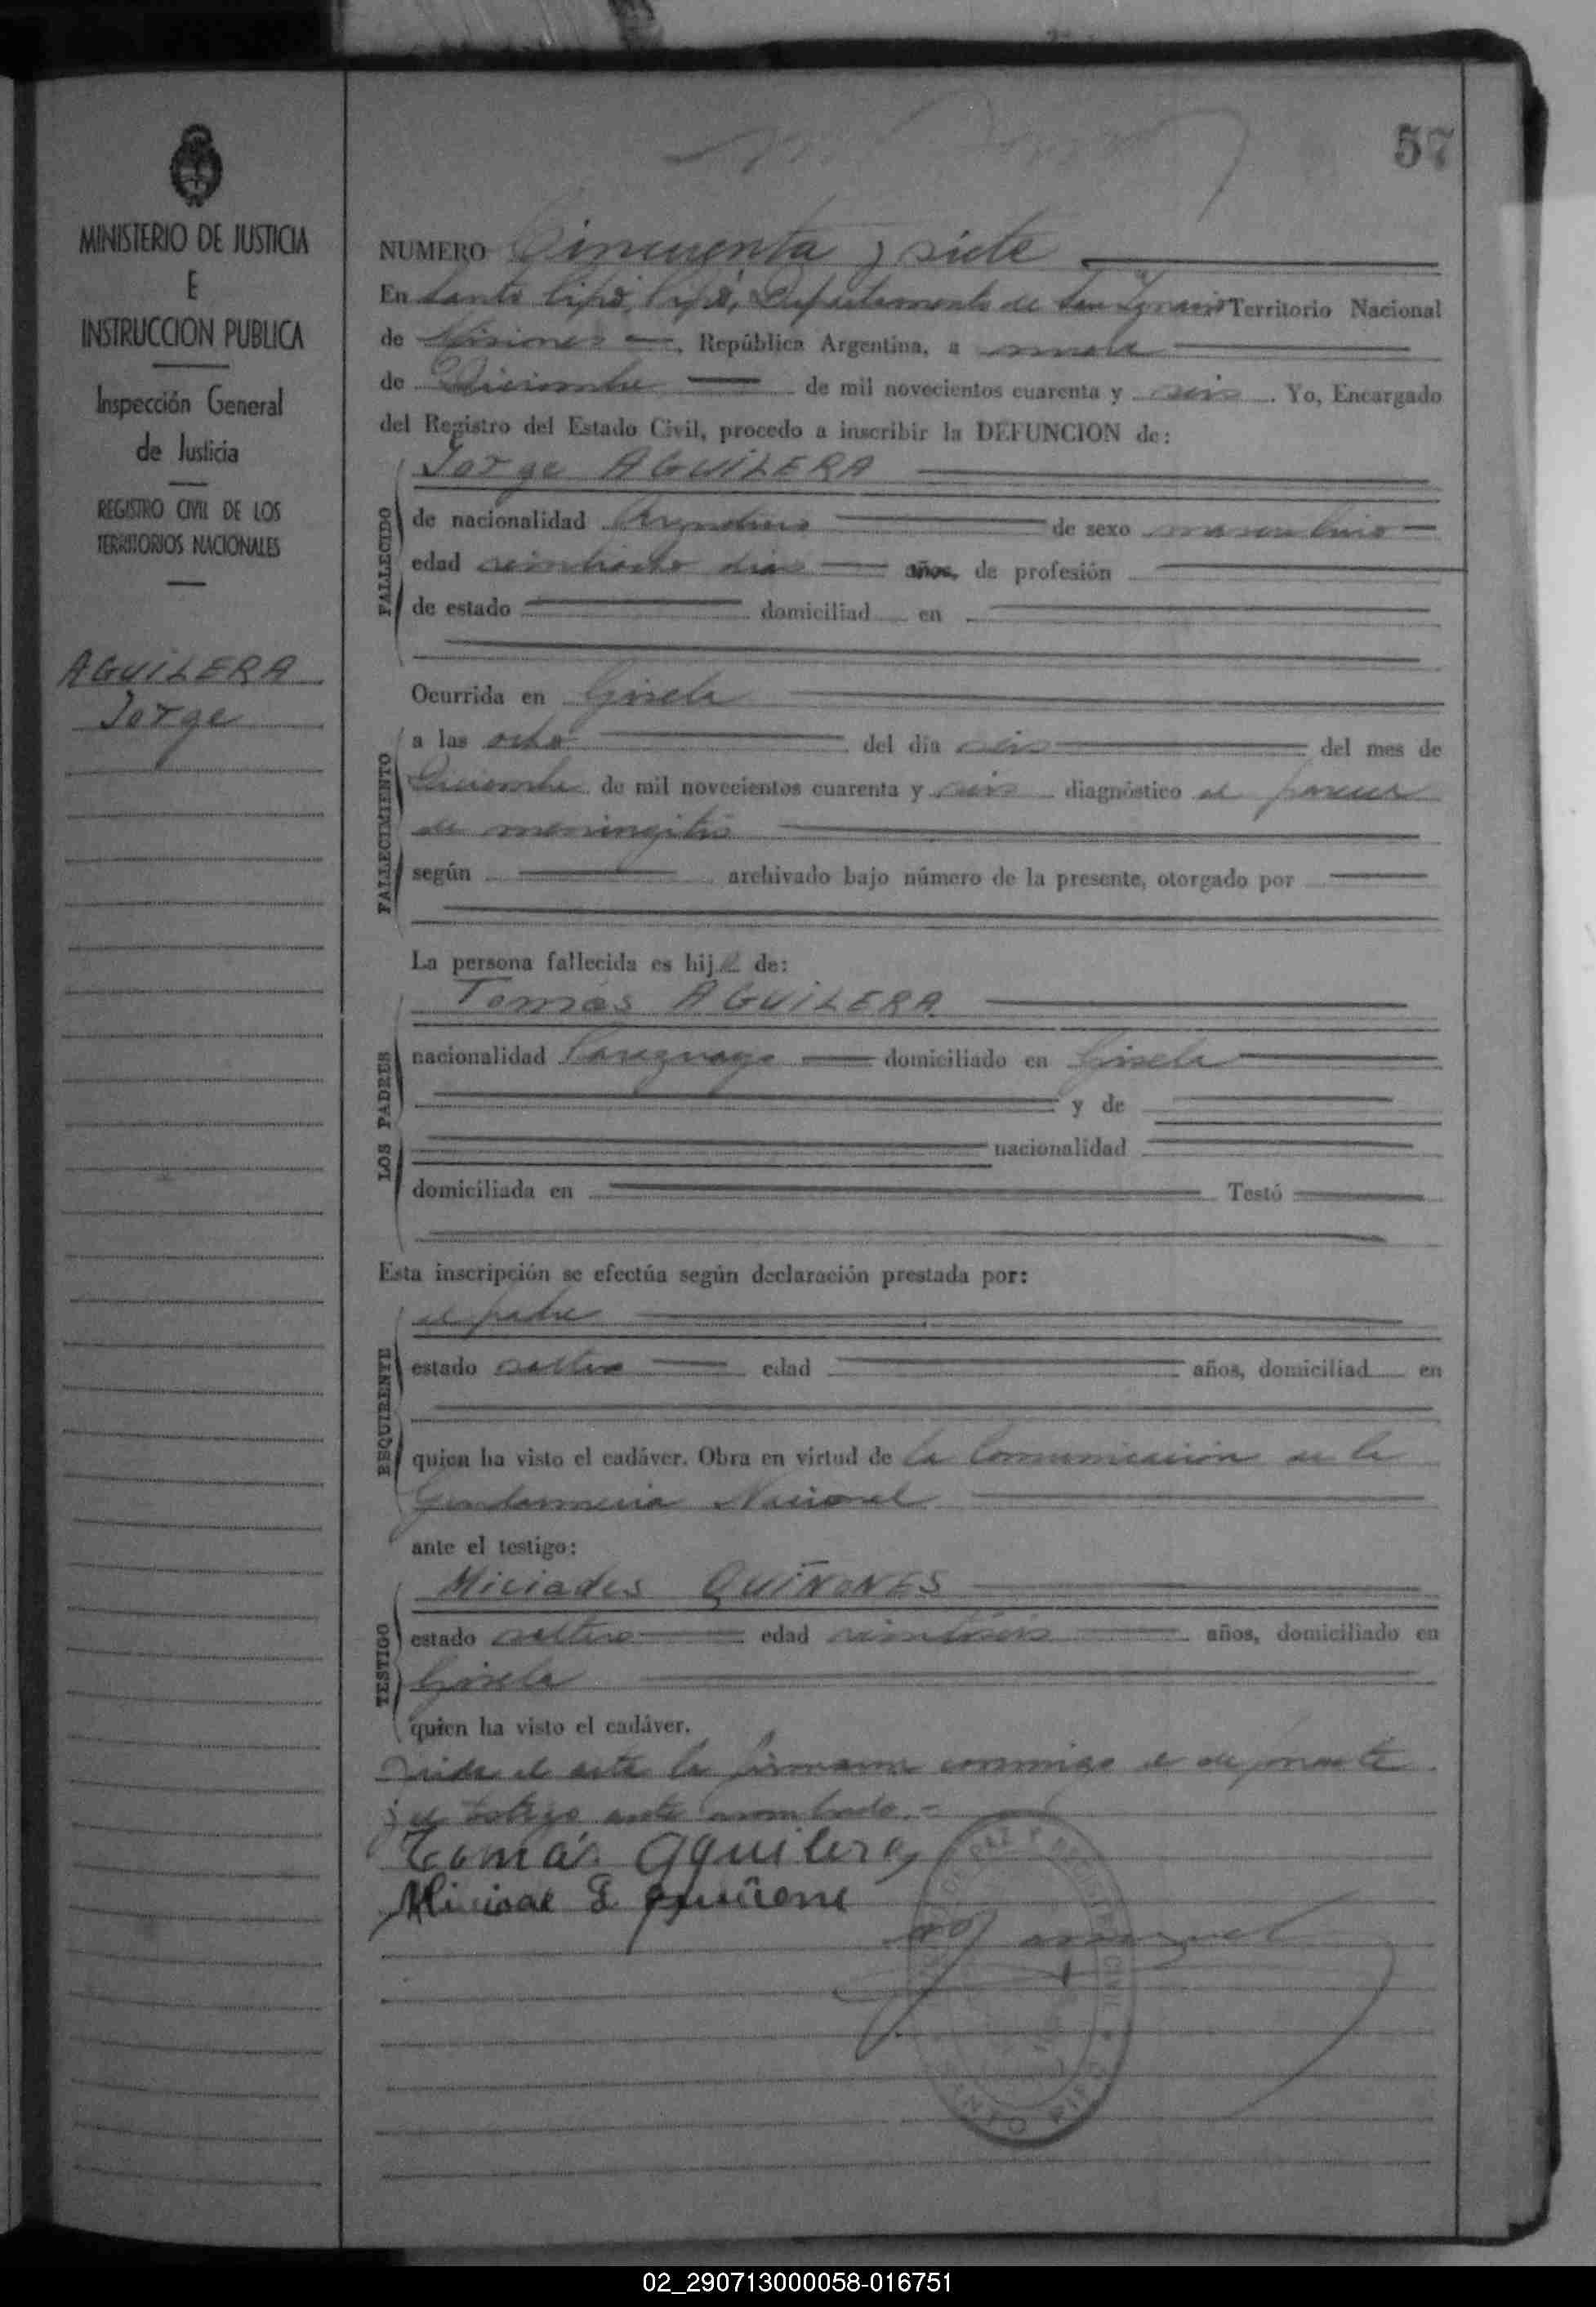 57
MINISTERIO DE JUSTICIA
E
INSTRUCCION PUBLICA
Inspección General
de Justicia
REGISTRO CIVIL DE LOS
TERRITORIOS NACIONALES
AGUILERA
Jorge
NUMERO Cincuenta y siete
En Santo Pipó, Pipó, Departamento de San Ignacio Territorio Nacional
de Misiones, República Argentina, a nueve
de Diciembre de mil novecientos cuarenta y seis. Yo, Encargado
del Registro del Estado Civil, procedo a inscribir la DEFUNCION de:
Jorge AGUILERA
FALLECIDO
de nacionalidad Argentino de sexo masculino
edad veintiocho dias años, de profesión
de estado domiciliad en
FALLECIMIENTO
Ocurrida en Gisela
a las ocho del día seis del mes de
Diciembre de mil novecientos cuarenta y seis diagnóstico al parecer
de meningitis
según archivado bajo número de la presente, otorgado por
La persona fallecida es hijo de:
LOS PADRES
Tomás AGUILERA
nacionalidad Paraguayo domiciliado en Gisela
y de
nacionalidad
domiciliada en Testó
Esta inscripción se efectúa según declaración prestada por:
REQUIRENTE
el padre
estado soltero edad años, domiciliad en
quien ha visto el cadáver. Obra en virtud de la Comunicación de la
Gendarmeria Nacional
ante el testigo:
TESTIGO
Miciades QUIÑONES
estado soltero edad veintiseis años, domiciliado en
Gisela
quien ha visto el cadáver.
el acta la firmaron conmigo el
y el testigo ante nombrado.-
Tomás Aguilera
02_290713000058-016751